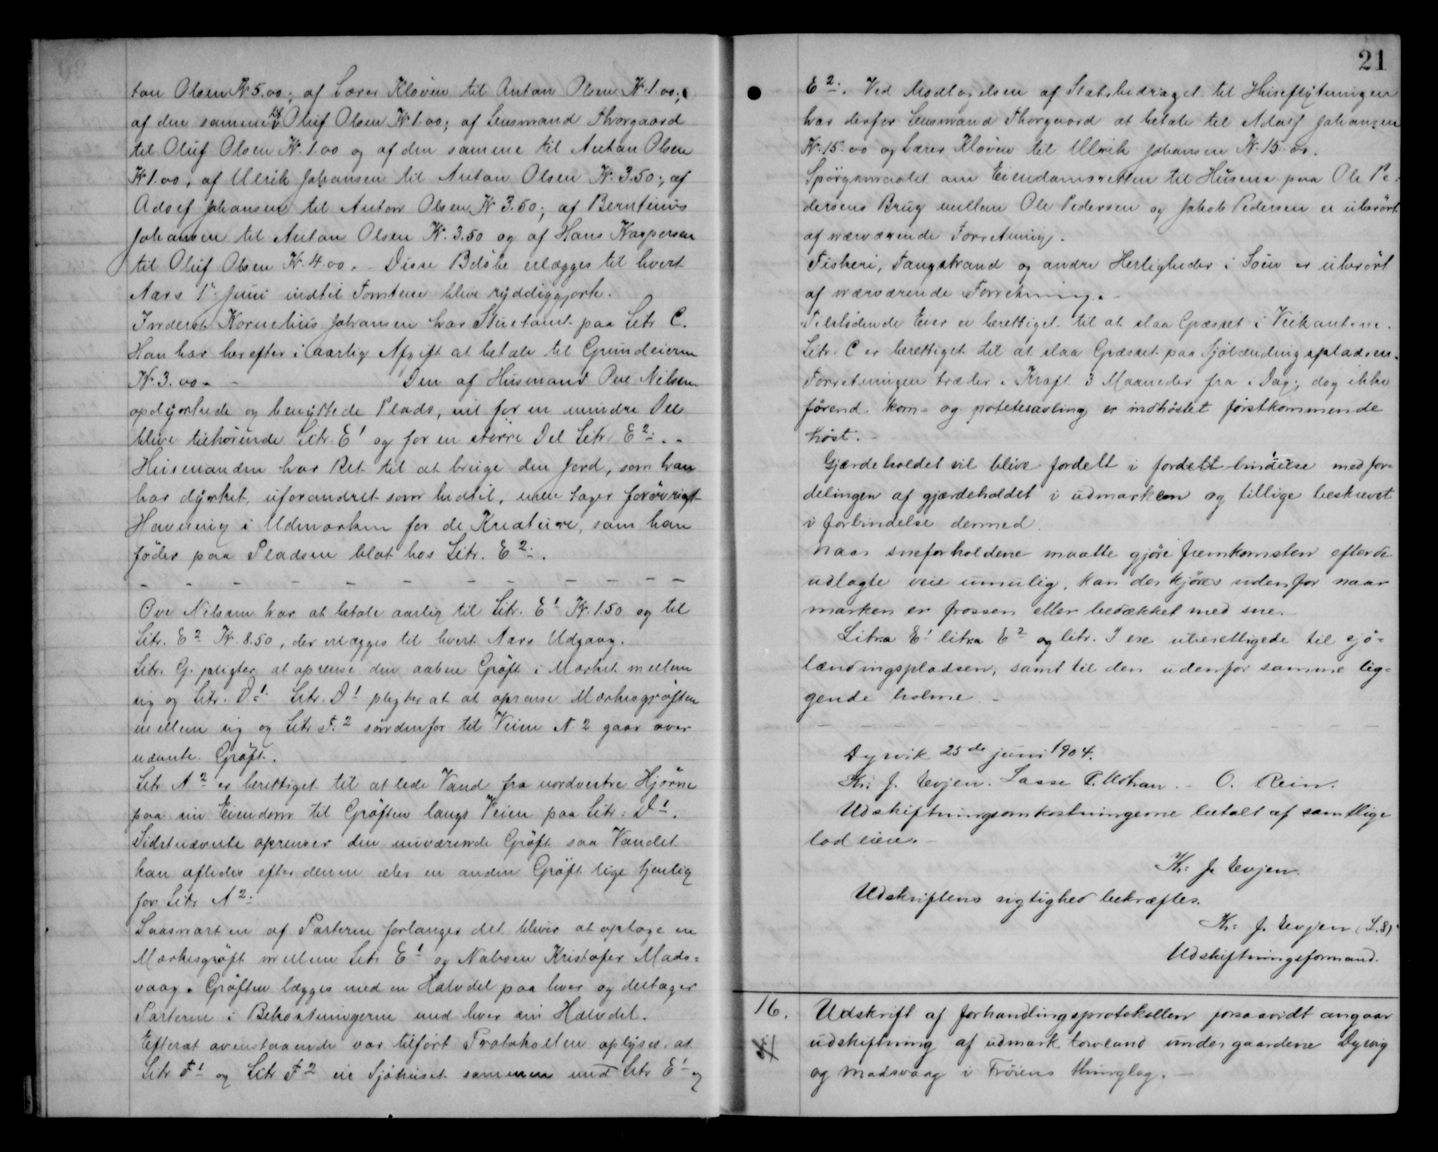 ton Olsen Kr 5.00; af Lærer Kloven til Anton Olsen Kr. 1.00;
af den samme til Oluf Olsen Kr 1.00; af Lensmand Thorgaard
til Oluf Olsen Kr. 1.00 og af den samme til Anton Olsen
Kr 1.00, af Ulrik Johansen til Anton Olsen Kr. 3.50; af
Adolf Johansen til Anton Olsen Kr 3.50; af Berntinus
Johansen til Anton Olsen Kr. 3.50 og af Hans Kaspersen
til Oluf Olsen Kr. 4.00. Disse Beløbe erlægges til hvert
Aars 1ste Juni indtil Tomtene blive ryddiggjorte.
Inderst Kornelius Johansen har Stuetomt paa Litr C.
Han har herefter i aarlig Afgift at betale til Grundeieren
Kr. 3.00 - - Den af Husmand Ove Nilsen
opdyrkede og benyttede Plads, vil for en mindre Del
blive tilhørende Litr. E1 og for en større Del Litr E2. -
Husmanden har Ret til at bruge den Jord, som han
har dyrket, uforandret som hidtil, men tager forøvrigt
Havning i Udmarken for de Kreature, som han
føder paa Pladsen blot hos Litr. E2.
- - - - - - - - - - -
Ove Nilsen har at betale aarlig til Litr. E1 Kr. 1.50 og til
Litr. E2 Kr. 8.50, der erlægges til hvert Aars Udgang.
Litr. G. pligter at oprense den aabne Grøft i Mærket mellem
sig og Litr. D1. Litr. D1 pligter at at oprense Mærkesgrøften
mellem sig og Litr F.2 søndenfor til Veien N 2 gaar over
nævnte Grøft.
Litr A2 er berettiget til at lede Vand fra nordvestre Hjørne
paa sin Eiendom til Grøften langs Veien paa Litr: D1.
Sidstnævnte oprenser den nuværende Grøft saa Vandet
kan afledes efter denne eler en anden Grøft lige tjenlig
for Litr A2.
Saasnart en af Parterne forlanger det bliver at optage en
Mærkesgrøft mellem Litr E1 og Naboen Kristofer Mads=
vaag. Grøften lægges med en Halvdel paa hver og deltager
Parterne i Bekostningerne med hver sin Halvdel.
Efterat ovenstaaende var tilført Protokollen oplyses. at
Litr F1 og Litr F2 eie Sjøhuset sammen med Litr E1 og
21
E2. Ved Modtagelsen af Statsbidraget til Huseflytningen
har derfor Lensmand Thorgaard at betale til Adolf Johansen
Kr. 15.00 og Lærer Kloven til Ulrik Johansen Kr. 15.00.
Spørgsmaalet om Eiendomsretten til Husene paa Ole Pe-
dersens Brug mellem Ole Pedersen og Jakob Pedersen er uberørt
af nærværende Forretning.
Fiskeri, Fangstrand og andre Herligheder i Søen er uberørt
af nærværende Forretning. -
Tilstødende Eier er berettiget til at slaa Græsset i Veikantene.
Litr. C er berettiget til at slaa Græsset paa Sjølændingspladsen.
Forretningen træder i Kraft 3 Maaneder fra i Dag; dog ikke
førend korn- og potetesavling er indhøstet førstkommende
høst. -
Gjærdeholdet vil blive fordelt i forbindelse med for-
delingen af gjærdeholdet i udmarken og tillige beskrevet
i forbindelse dermed.
Naar sneforholdene maatte gjøre fremkomsten efter de
udlagte veie umulig, kan der kjøres udenfor naar
marken er frossen eller bedækket med sne.
Litra E1 litra E2 og litr. I ere uberettigede til sjø-
lændingspladsen, samt til den udenfor samme lig-
gende holme -
- - - - - - - - - -
Dyrvik 25de juni 1904.
Kr. J. Evjen. Lasse P. Mohan. - O. Rein.
Udskiftningsomkostningerne betalt af samtlige
lodeiere. -
Kr. J. Evjen.
Udskriftens rigtighed bekræftes.
Kr. J. Evjen (L.S)
Udskiftningsformand.
16. Udskrift af forhandlingsprotokollen forsaavidt angaar
udskiftning af udmark under gaardene Dyrvig
og Madsvaag i Frøiens thinglag. -